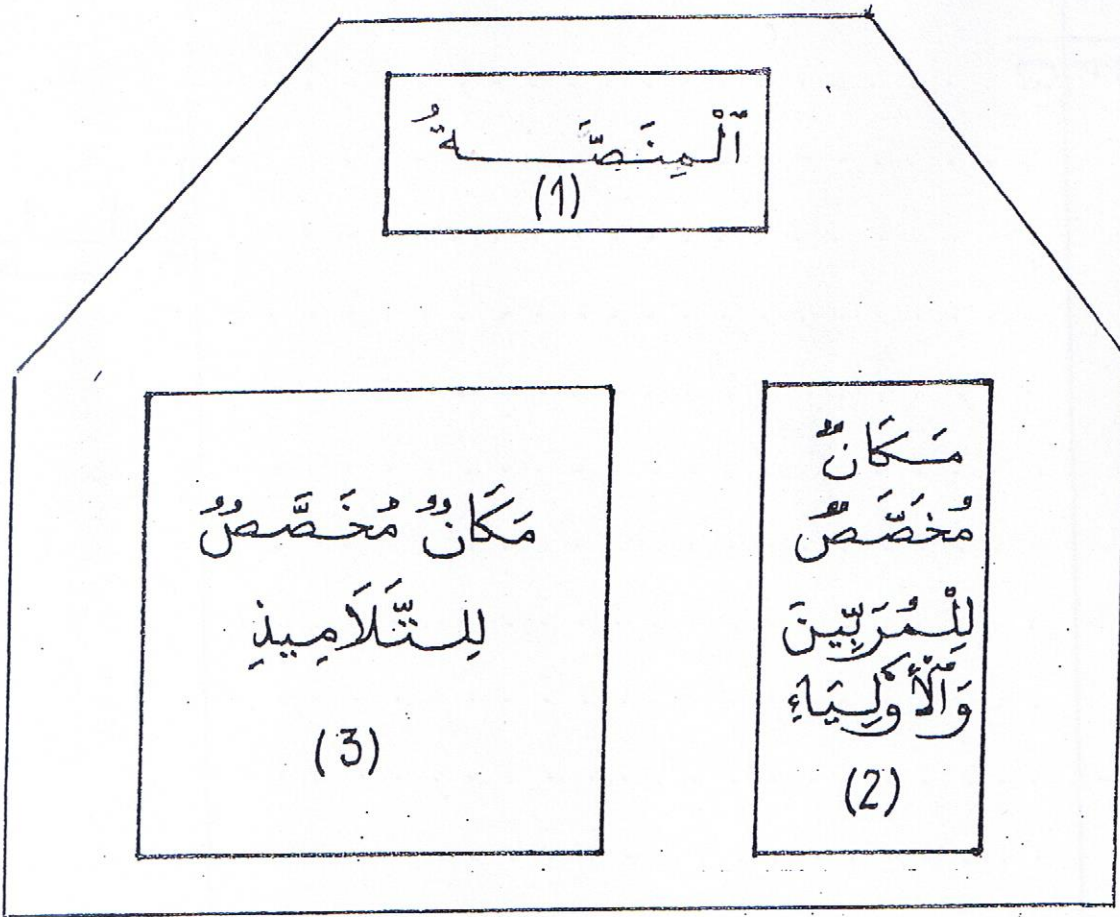 ٱلْمِنَصَّـــــةُ
(1)
مَكَانٌ
مُخَصَّصٌ
لِلْمُرَبِّينَ
وَٱلْأَوْلِيَاءِ
(2)
مَكَانٌ مُخَصَّصٌ
لِلتَّلَامِيذِ
(3)